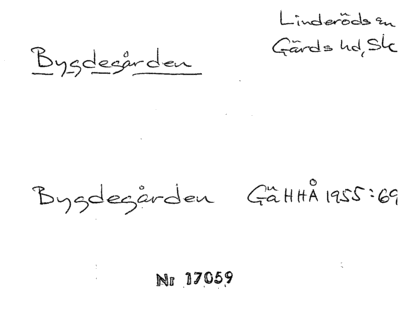 Linderöds sn
Gärds hd, Sk
Bygdegården
Bygdegården GäHHÅ 1955:69
Nr 17059